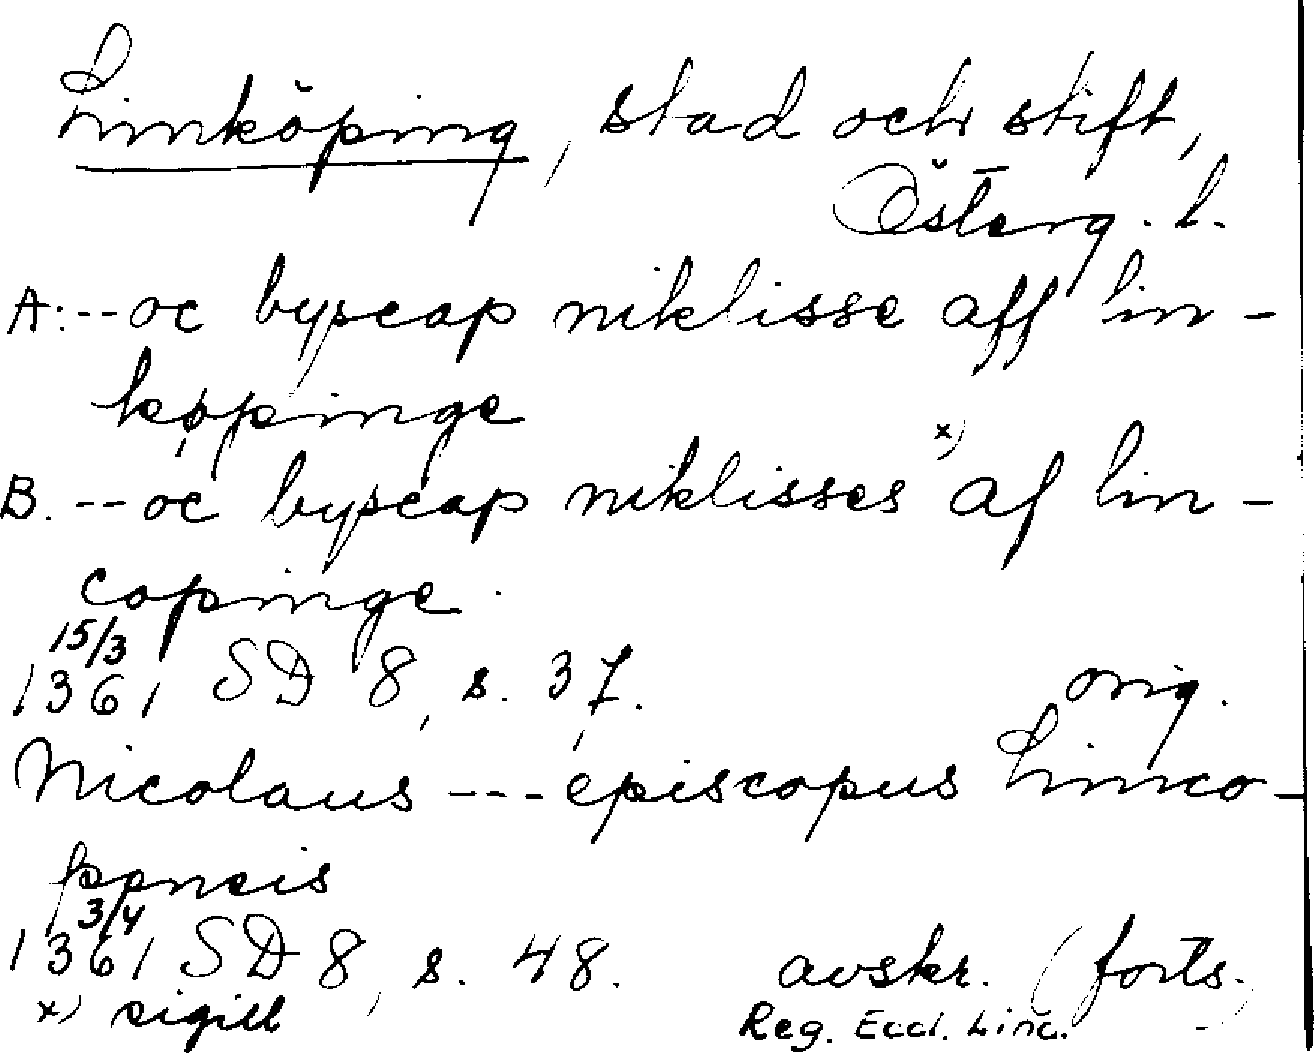 Linköping, stad och stift,
Österg. l.
A: -- oc byscap niklisse aff lin-
køpinge
B. -- oc byscap niklisses x) af lin-
copinge.
15/3
1361 SD 8, s. 37. orig.
Nicolaus --- episcopus Linco-
pensis
3/4
1361 SD 8, s. 48. avskr. (forts.)
x) sigill Reg. Eccl. Linc.